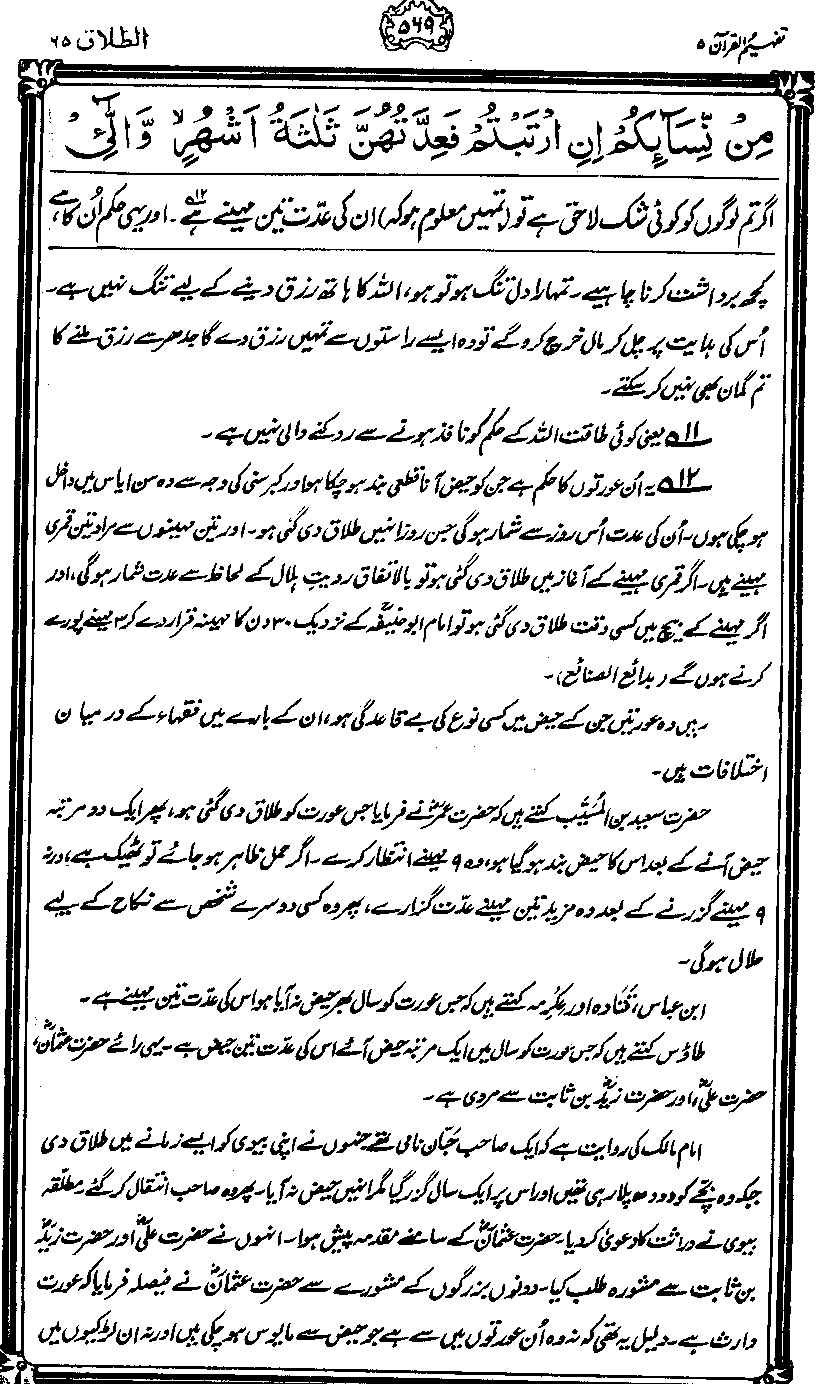 تفہیم القرآن ۵
۵۶۹
الطلاق ۶۵
مِنْ نِّسَآئِكُمْ اِنِ ارْتَبْتُمْ فَعِدَّتُهُنَّ ثَلٰثَةُ اَشْهُرٍ ۙ وَّالّٰٓئِیْ
اگر تم لوگوں کو کوئی شک لاحق ہے تو (تمہیں معلوم ہو کہ) ان کی عدّت تین مہینے ہے ۱۲۔ اور یہی حکم اُن کا ہے،
کچھ برداشت کرنا چاہیے۔ تمہارا دل تنگ ہو تو ہو، اللہ کا ہاتھ رزق دینے کے لیے تنگ نہیں ہے۔
اُس کی ہدایت پر چل کر مال خرچ کرو گے تو وہ ایسے راستوں سے تمہیں رزق دے گا جدھر سے رزق ملنے کا
تم گمان بھی نہیں کر سکتے۔
۱۱ یعنی کوئی طاقت اللہ کے حکم کو نافذ ہونے سے روکنے والی نہیں ہے۔
۱۲ یہ اُن عورتوں کا حکم ہے جن کو حیض آنا قطعی بند ہو چکا ہو اور کبر سنی کی وجہ سے وہ سن ایاس میں داخل
ہو چکی ہوں۔ اُن کی عدت اُس روز سے شمار ہو گی جس روز انہیں طلاق دی گئی ہو۔ اور تین مہینوں سے مراد تین قمری
مہینے ہیں۔ اگر قمری مہینے کے آغاز میں طلاق دی گئی ہو تو بالاتفاق رویتِ ہلال کے لحاظ سے عدت شمار ہو گی، اور
اگر مہینے کے بیچ میں کسی وقت طلاق دی گئی ہو تو امام ابو حنیفہؒ کے نزدیک ۳۰ دن کا مہینہ قرار دے کر ۳ مہینے پورے
کرنے ہوں گے (بدائع الصنائع)۔
رہیں وہ عورتیں جن کے حیض میں کسی نوع کی بے قاعدگی ہو، ان کے بارے میں فقہاء کے درمیان
اختلافات ہیں۔
حضرت سعید بن المُسَیَّب کہتے ہیں کہ حضرت عمرؓ نے فرمایا جس عورت کو طلاق دی گئی ہو، پھر ایک دو مرتبہ
حیض آنے کے بعد اس کا حیض بند ہو گیا ہو، وہ ۹ مہینے انتظار کرے۔ اگر حمل ظاہر ہو جائے تو ٹھیک ہے، ورنہ
۹ مہینے گزرنے کے بعد وہ مزید تین مہینے عدّت گزارے، پھر وہ کسی دوسرے شخص سے نکاح کے لیے
حلال ہو گی۔
ابن عباس، قَتَادہ اور عِکرِمہ کہتے ہیں کہ جس عورت کو سال بھر حیض نہ آیا ہو اس کی عدّت تین مہینے ہے۔
طاؤس کہتے ہیں کہ جس عورت کو سال میں ایک مرتبہ حیض آئے اس کی عدّت تین حیض ہے۔ یہی رائے حضرت عثمانؓ،
حضرت علیؓ، اور حضرت زیدؓ بن ثابت سے مروی ہے۔
امام مالک کی روایت ہے کہ ایک صاحب حَبّان نامی تھے جنہوں نے اپنی بیوی کو ایسے زمانے میں طلاق دی
جبکہ وہ بچّے کو دودھ پلا رہی تھیں اور اس پر ایک سال گزر گیا مگر انہیں حیض نہ آیا۔ پھر وہ صاحب انتقال کر گئے۔ مطلّقہ
بیوی نے وراثت کا دعویٰ کر دیا۔ حضرت عثمانؓ کے سامنے مقدمہ پیش ہوا۔ انہوں نے حضرت علیؓ اور حضرت زیدؓ
بن ثابت سے مشورہ طلب کیا۔ دونوں بزرگوں کے مشورے سے حضرت عثمانؓ نے فیصلہ فرمایا کہ عورت
وارث ہے۔ دلیل یہ تھی کہ نہ وہ اُن عورتوں میں سے ہے جو حیض سے مایوس ہو چکی ہیں اور نہ ان لڑکیوں میں